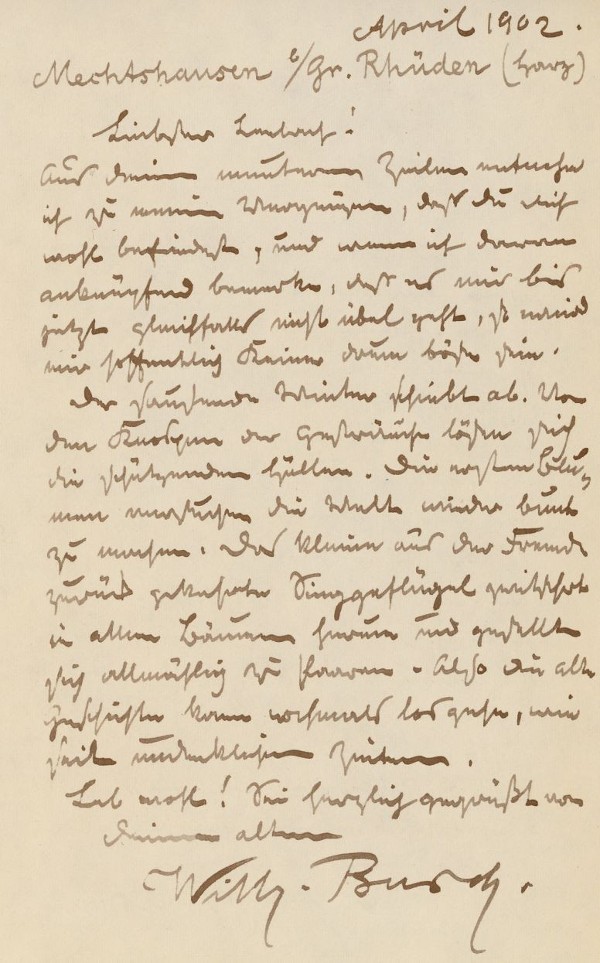 April 1902.
Mechtshausen b/Gr. Rhüden (Harz)
Liebster Lenbach!
Aus deinen munteren Zeilen entnehm
ich zu meinem Vergnügen, daß du dich
wohl befindest, und wenn ich daran
anknüpfend bemerke, daß es mir bis
jetzt gleichfalls nicht übel geht, so wird
mir hoffentlich Keiner drum böse sein.
Der sausende Winter schiebt ab. Von
den Knospen der Gesträuche lösen sich
die schützenden Hüllen. Die ersten Blu-
men versuchen die Welt wieder bunt
zu machen. Das kleine aus der Fremde
zurück gekehrte Singgeflügel zwitschert
in allen Bäumen herum und gesellt
sich allmählig zu Paaren. Also die alte
Geschichte kann nochmals losgehn, wie
seit undenklichen Zeiten.
Leb wohl! Sei herzlich gegrüßt von
deinem alten
Wilh. Busch.